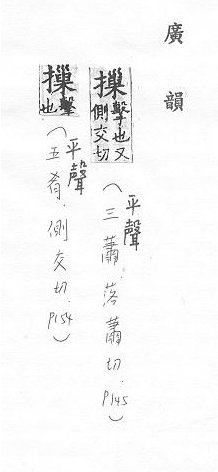 廣韻
摷擊也又側交切
(平聲三蕭.落蕭切.P145)
摷擊也
(平聲五肴.側交切.P154)